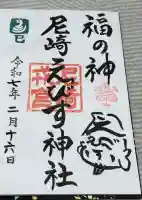 福の神
尼崎えびす神社
令和七年二月十六日
巳